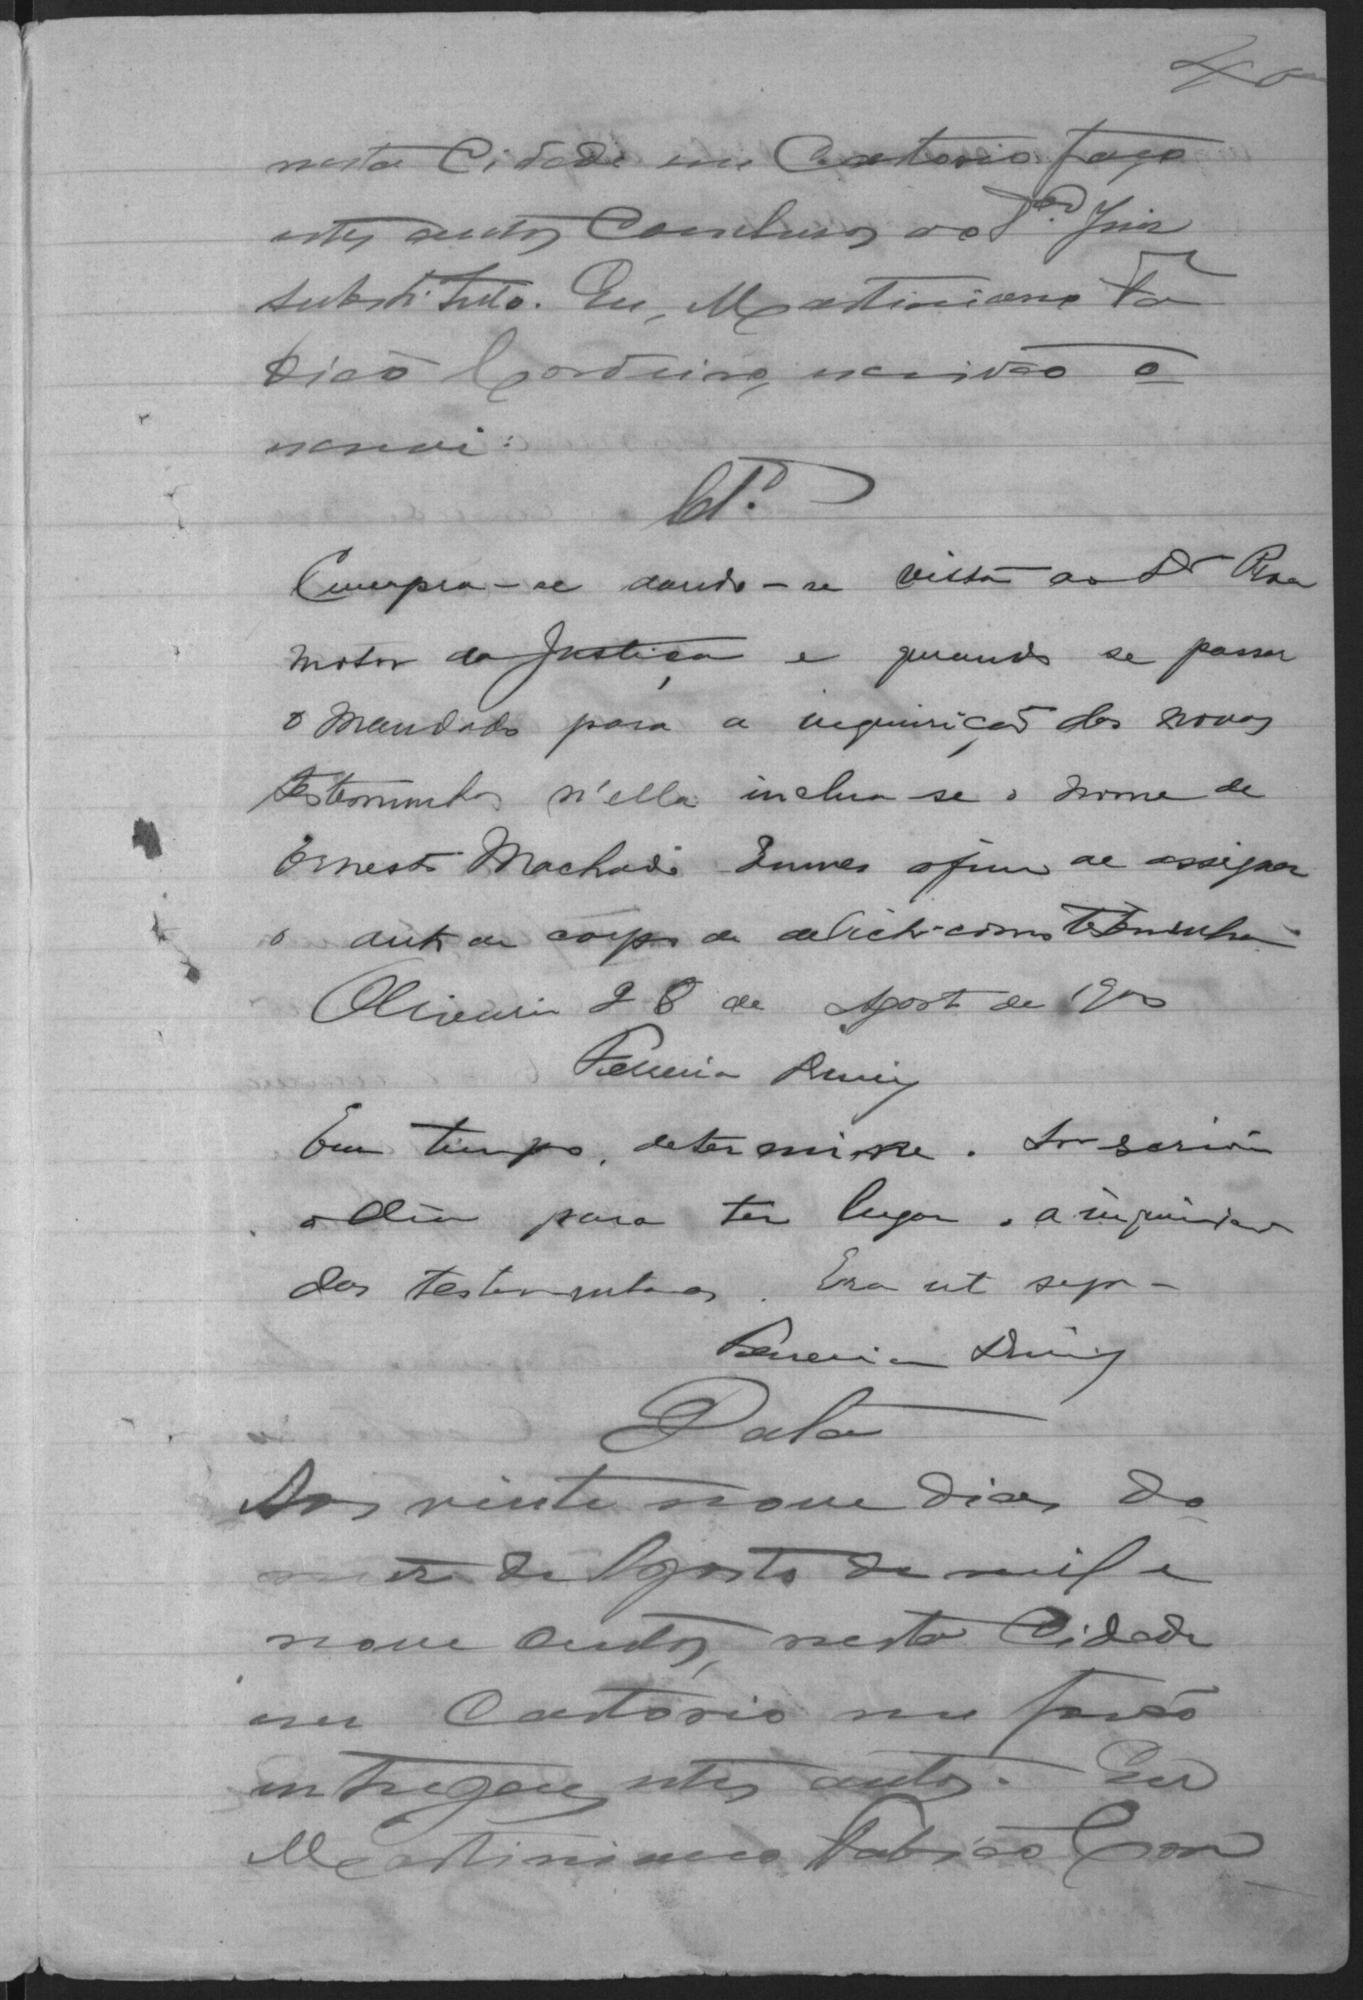 40
nesta Cidade em Cartorio faço
estes autos Conclusos ao Juiz
substituto. Eu, Martiniano Fa
bião Cordeiro, escrivão o
escrevi:
Cls.
Cumpra-se dando-se vista ao Dr Pro
motor da Justiça e quando se passar
o mandado para a inquirição das novas
testemunhas n'elle inclua-se o nome de
Ernesto Machado afim de assignar
o auto de corpo de delicto como testemunha
Oliveira 28 de Agosto de 1900
Ferreira
Em tempo, determine o Snr escrivão
o dia para ter lugar a inquirição
das testemunhas. Era ut supra
Ferreira
Data
Aos vinte nove dias do
mez de Agosto de mil e
nove centos, nesta Cidade
em Cartorio me forão
entregues estes autos. Eu
Martiniano Fabião Cor